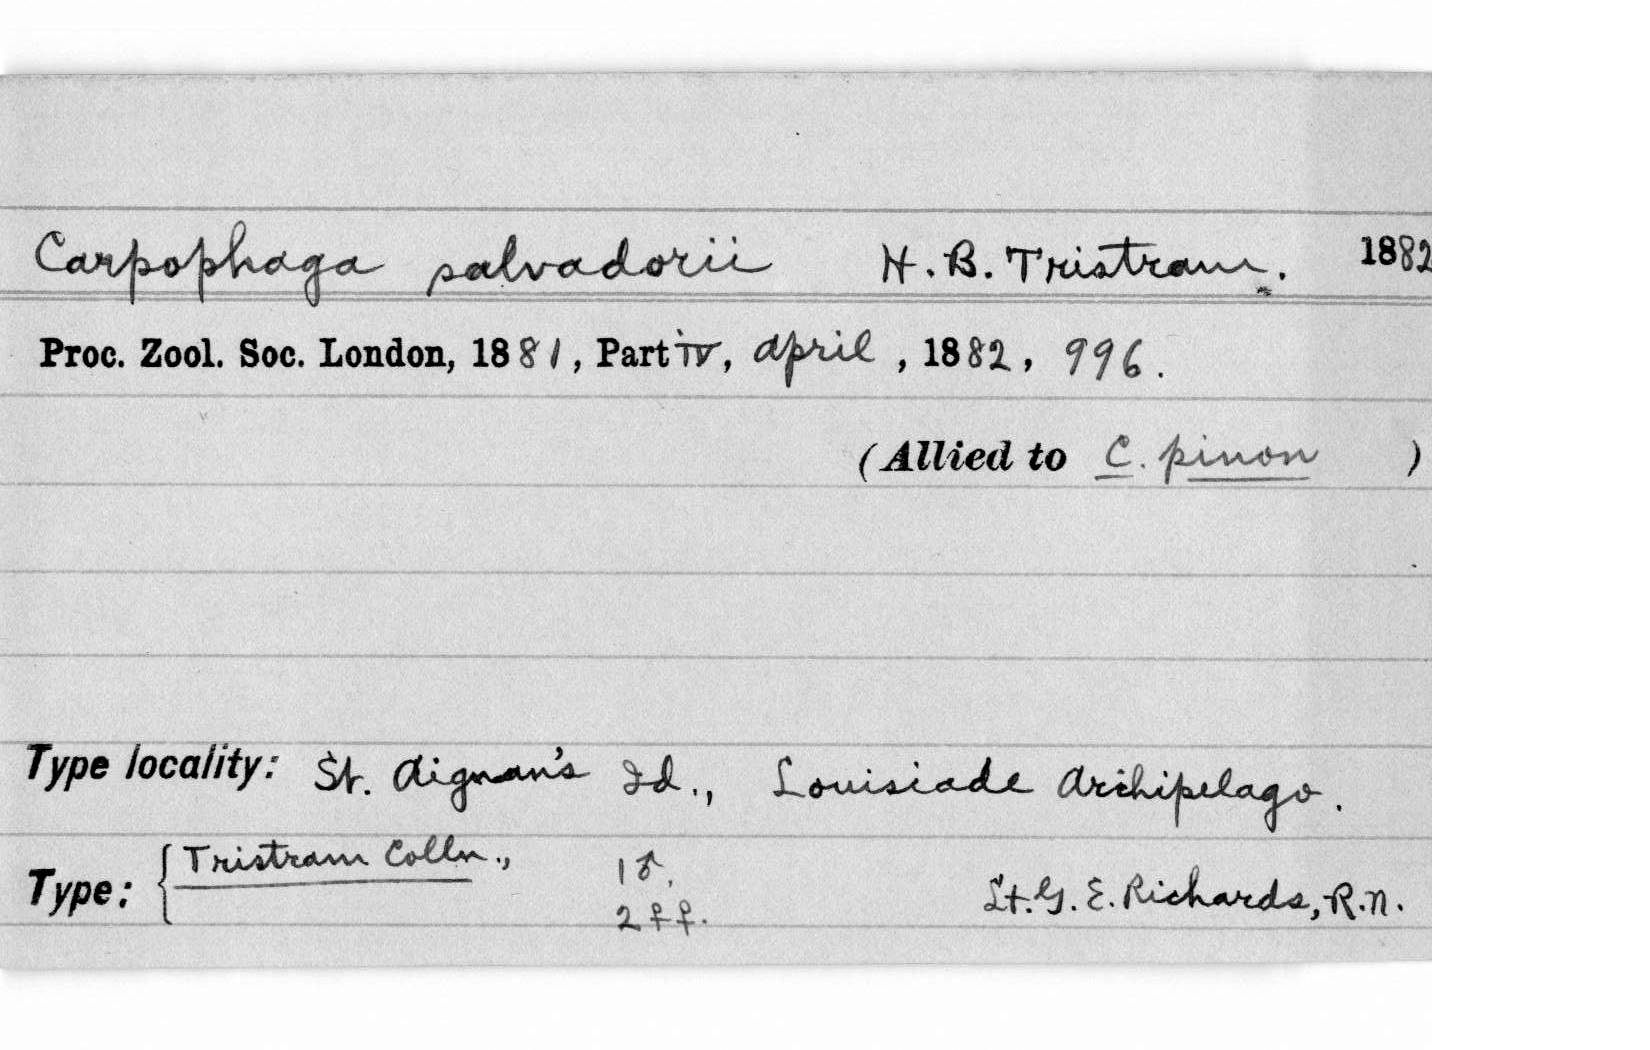 Carpophaga salvadorii H. B. Tristram. 1882
Proc. Zool. Soc. London, 1881, Part iv, April, 1882, 996.
(Allied to C. pinon )
Type locality: St. Aignan's Id., Louisiade Archipelago.
Type: { Tristram Colln., 1 ♂.
2 ♀♀. Lt. G. E. Richards, R.N.